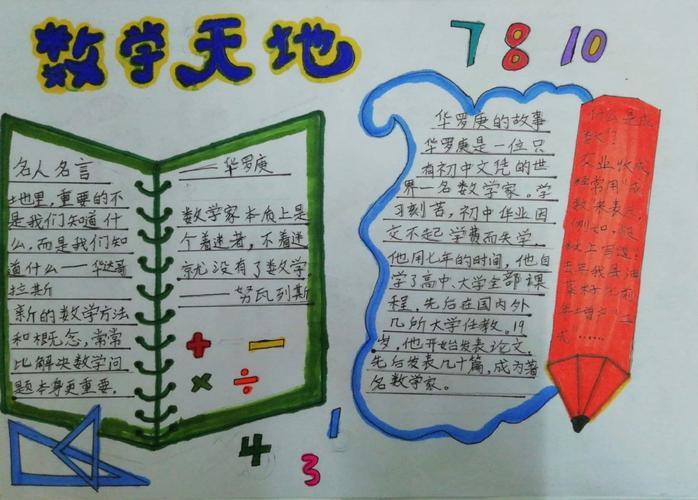 数学天地
7 8 10
名人名言
地里,重要的不
是我们知道什
么,而是我们知
道什么——毕达哥
拉斯
新的数学方法
和概念,常常
比解决数学问
题本身更重要.
——华罗庚
数学家本质上是
个着迷者,不着迷
就尤没有了数学.
——努瓦列斯
+ −
× ÷
4
3
1
华罗庚的故事
华罗庚是一位只
有初中文凭的世
界一名数学家。学
习刻苦,初中毕业因
交不起学费而失学.
他用七年的时间,他自
学了高中.大学全部课
程.先后在国内外
几所大学任教.19
岁,他开始发表论文.
先后发表几十篇,成为著
名数学家。
什么是成
数?
农业收成
经常用"成
数"来表示
例如,报
纸上写道:
去年我县油
菜籽